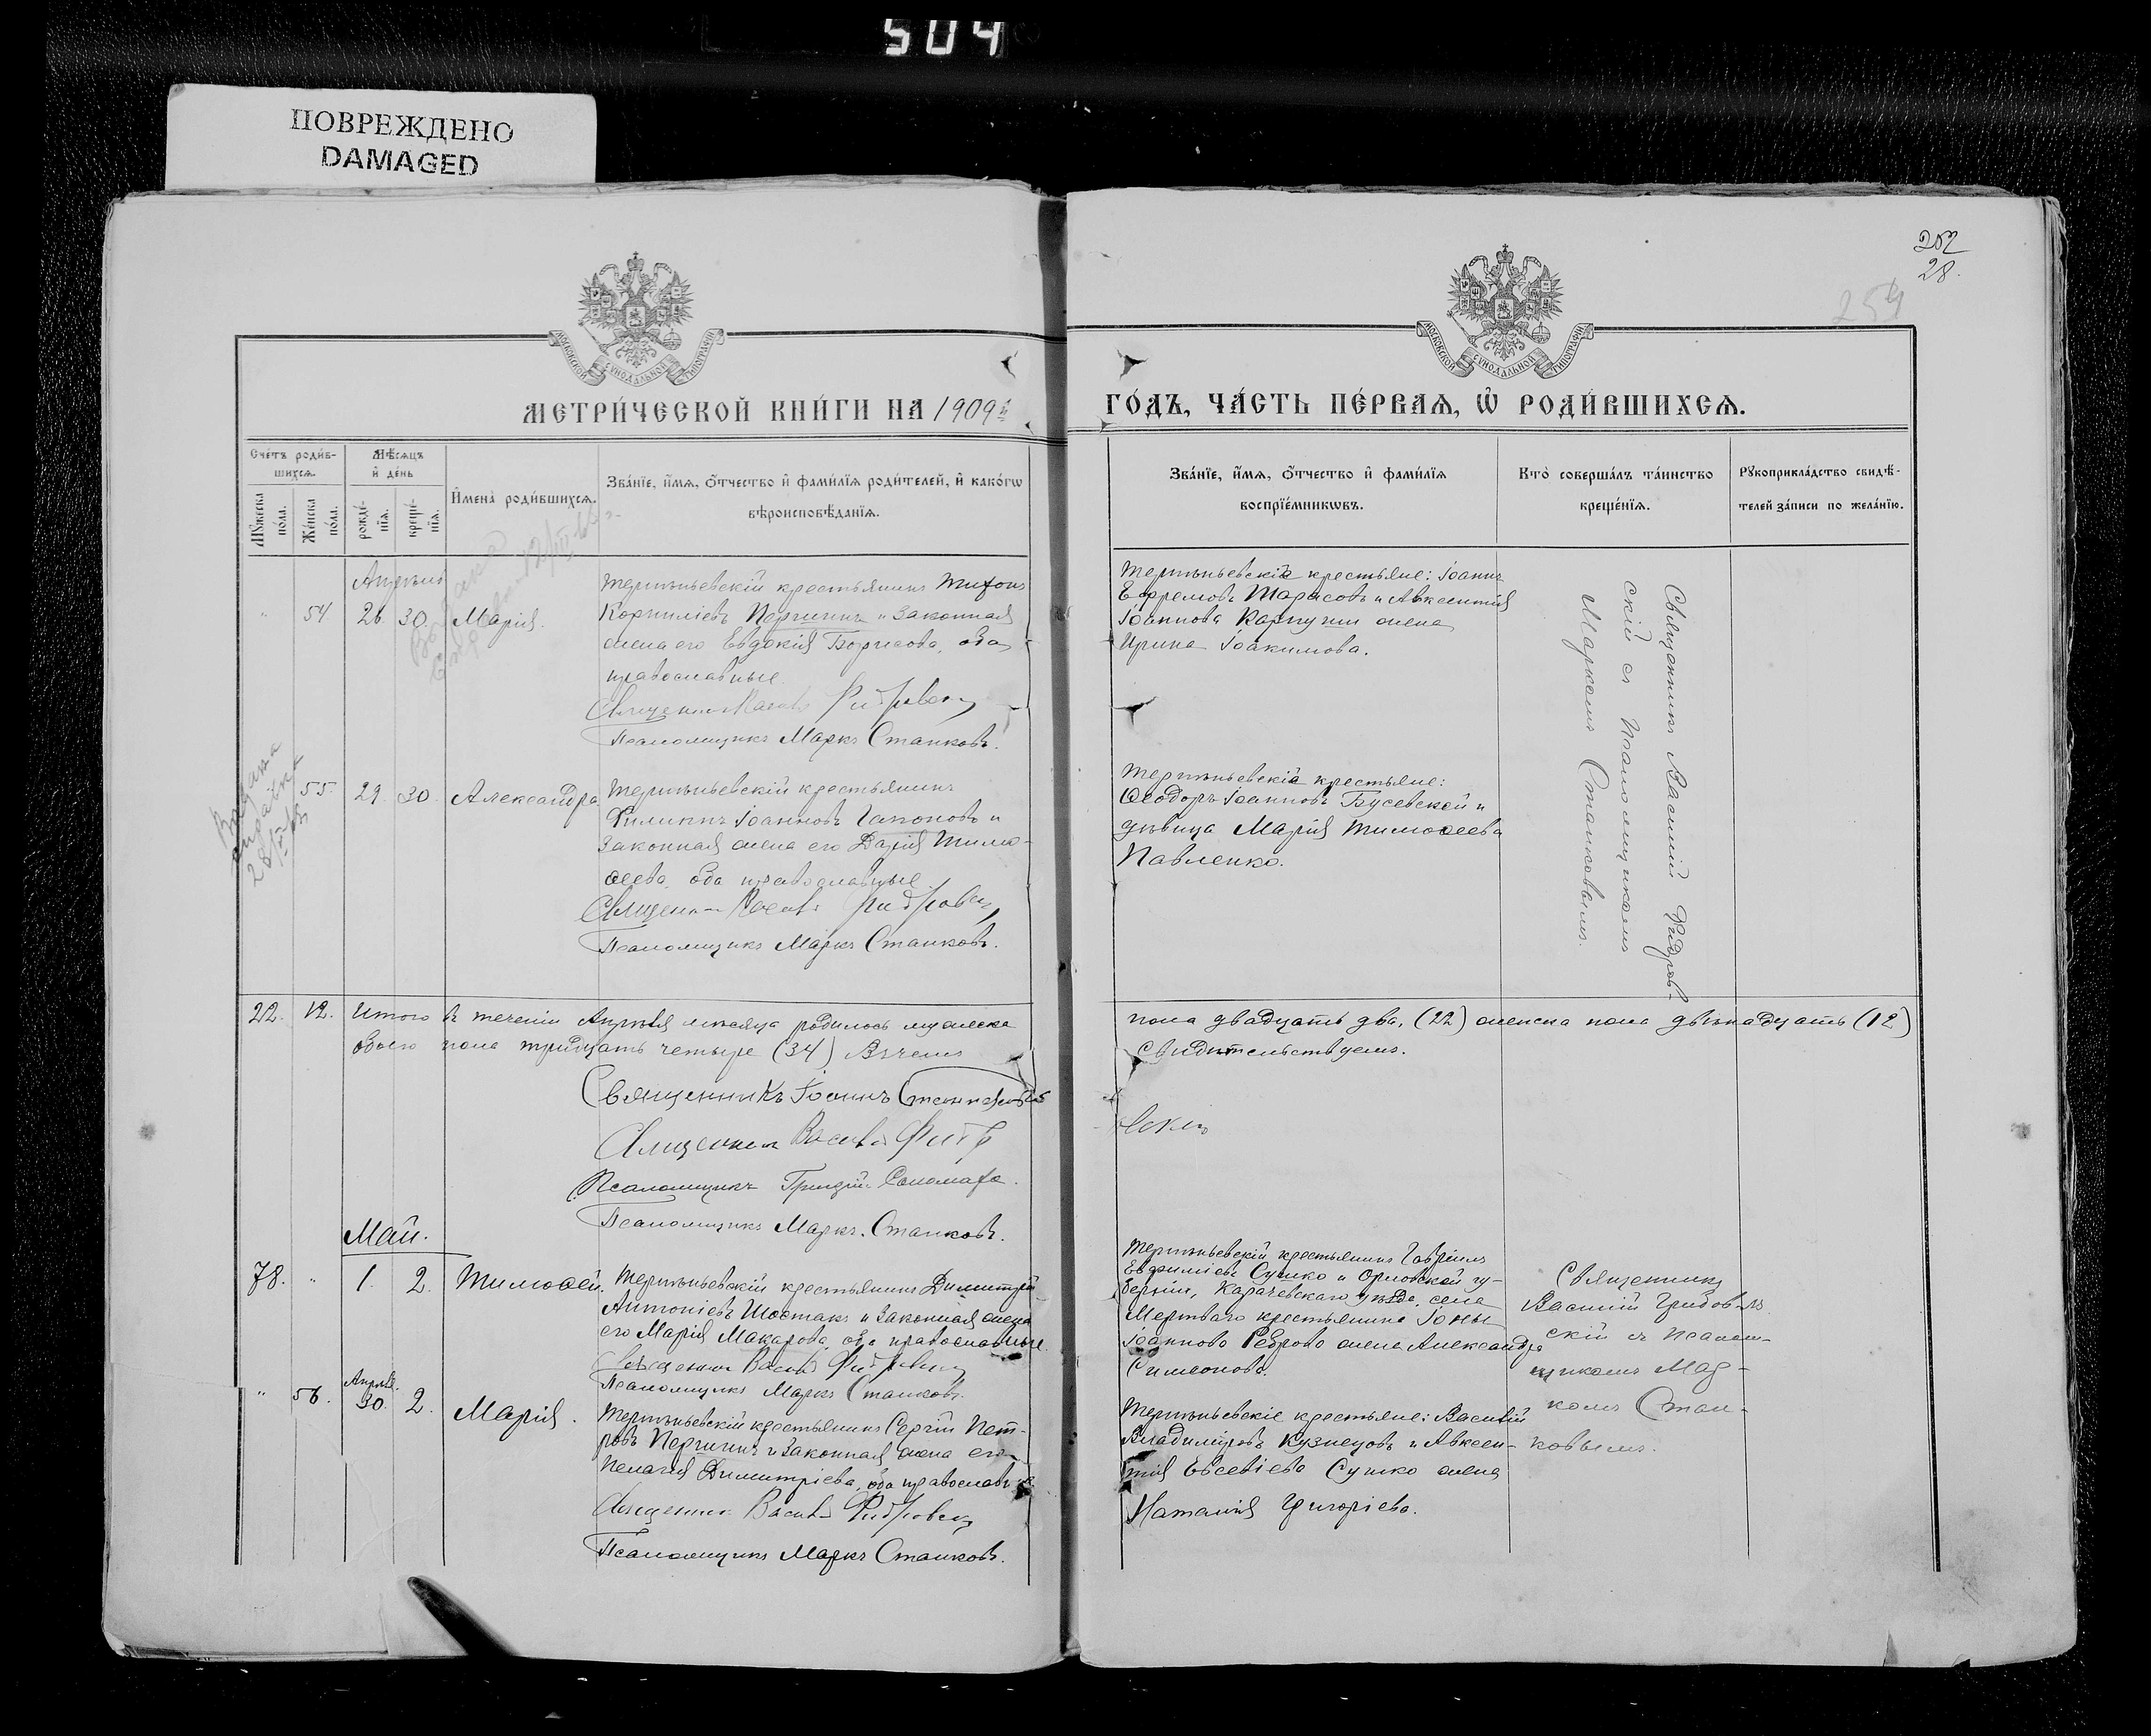 504
ПОВРЕЖДЕНО
DAMAGED
252
28.
254
МОСКОВСКОЙ СѴНОДАЛЬНОЙ ТИПОГРАФІИ
МОСКОВСКОЙ СѴНОДАЛЬНОЙ ТИПОГРАФІИ
МЕТРИ́ЧЕСКОЙ КНИ́ГИ НА 1909й
ГО́ДЪ, ЧА́СТЬ ПЕ́РВАѦ, Ѡ҆ РОДИ́ВШИХСѦ.
Сче́тъ роди́в-
шихсѧ.
Мꙋ́жеска по́ла.
Же́нска по́ла.
Мѣ́сѧцъ
и҆ де́нь
рожде́-
нїѧ.
креще́-
нїѧ.
И҆мена̀ роди́вшихсѧ.
Зва́нїе, и҆́мѧ, ѻ҆́тчество и҆ фами́лїѧ роди́телей, и҆ како́гѡ
вѣроисповѣ́данїѧ.
Зва́нїе, и҆́мѧ, ѻ҆́тчество и҆ фами́лїѧ
воспрїе́мникѡвъ.
Кто̀ соверша́лъ та́инство
креще́нїѧ.
Рꙋкоприкла́дство свидѣ́-
телей за́писи по жела́нїю.
Апрель
" 54 26 30. Марія.
Терпѣньевскій крестьянинъ Тихонъ
Корниліевъ Пергининъ и законная
жена его Евдокія Борисова, оба
православные.
Священникъ Василій Фидровскій
Псаломщикъ Маркъ Станковъ.
Терпѣньевскіе крестьяне: Іоаннъ
Ефремовъ Тарасовъ и Авксентія
Іоаннова жена
Ирина Іоакимова.
Священникъ Василій Фидров-
скій съ Псаломщикомъ
Маркомъ Станковымъ.
Выдана
28/
55 29. 30. Александра
Терпѣньевскій крестьянинъ
Филиппъ Іоанновъ Гапоновъ и
законная жена его Дарія Тимо-
ѳеева, оба православные.
Священникъ Василій Фидровскій
Псаломщикъ Маркъ Станковъ.
Терпѣньевскіе крестьяне:
Ѳеодоръ Іоанновъ Бусевской и
дѣвица Марія Тимоѳеева
Павленко.
22. 12. Итого въ теченіи Апрѣля мѣсяца родилось мужеска
пола двадцать два, (22) женска пола двѣнадцать (12)
обоего пола тридцать четыре (34) Въ чемъ
свидѣтельствуемъ.
Священникъ Іоаннъ
Священникъ Василій Фидр
овскій
Псаломщикъ Григорій Сапожара.
Псаломщикъ Маркъ Станковъ.
Май.
78. " 1. 2. Тимоѳей.
Терпѣньевскій крестьянинъ Димитрій
Антоніевъ Шостакъ и законная жена
его Марія Макарова, оба православные
Священникъ Василій Фидровскій
Псаломщикъ Маркъ Станковъ.
Терпѣньевскій крестьянинъ Гавріилъ
Евфиміевъ Сушко и Орловской гу-
берніи, Карачевскаго уѣзда, села
Мертваго крестьянина Іоны
Іоаннова Реброва жена Александра
Симеонова.
Священникъ
Василій Фидров-
скій съ Псалом-
щикомъ Мар-
комъ Стан-
ковымъ.
Апрѣль.
" 56. 30. 2. Марія.
Терпѣньевскій крестьянинъ Сергій Пет-
ровъ Пергининъ и законная жена его
Пелагія Димитріева, оба православные
Священникъ Василій Фидровскій
Псаломщикъ Маркъ Станковъ.
Терпѣньевскіе крестьяне: Василій
Владиміровъ Кузнецовъ и Авксен-
тія Евсевіева Сушко жена
Наталія Григоріева.